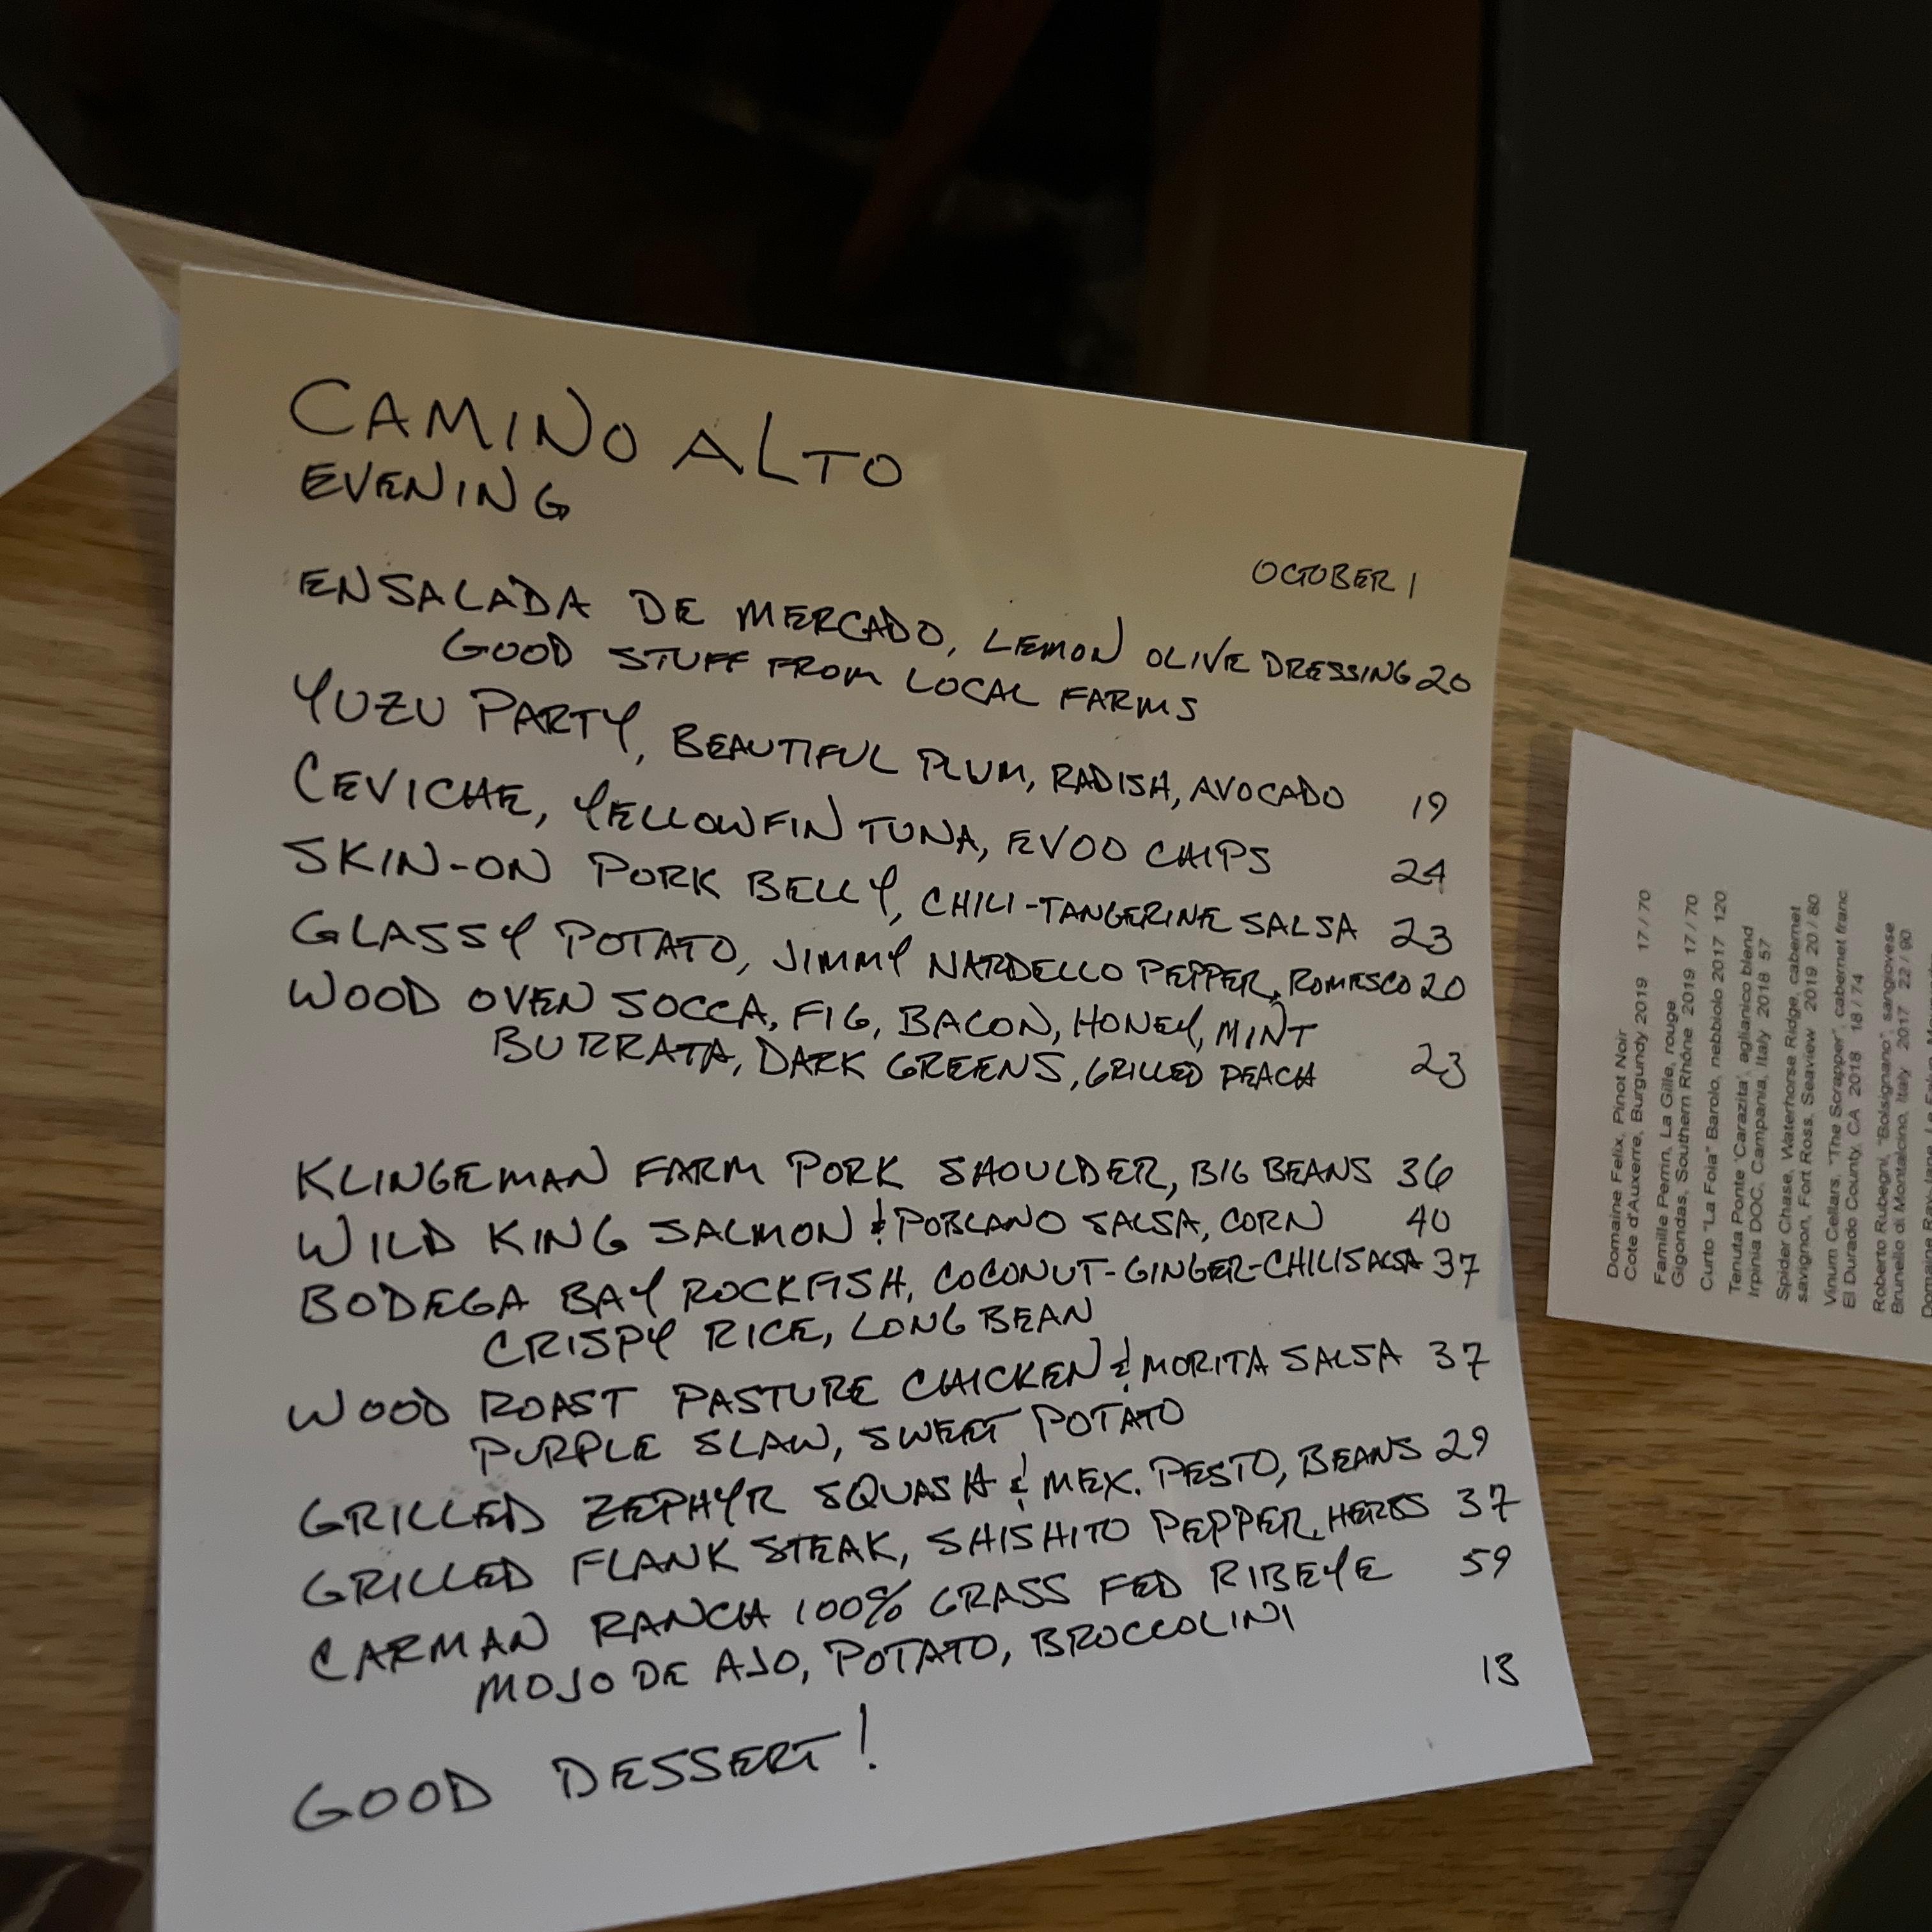 CAMINO ALTO
EVENING
OCTOBER 1
ENSALADA DE MERCADO, LEMON OLIVE DRESSING 20
GOOD STUFF FROM LOCAL FARMS
YUZU PARTY, BEAUTIFUL PLUM, RADISH, AVOCADO 19
CEVICHE, YELLOWFIN TUNA, EVOO CHIPS 24
SKIN-ON PORK BELLY, CHILI-TANGERINE SALSA 23
GLASSY POTATO, JIMMY NARDELLO PEPPER, ROMESCO 20
WOOD OVEN SOCCA, FIG, BACON, HONEY, MINT
BURRATA, DARK GREENS, GRILLED PEACH 23
KLINGEMAN FARM PORK SHOULDER, BIG BEANS 36
WILD KING SALMON & POBLANO SALSA, CORN 40
BODEGA BAY ROCKFISH, COCONUT-GINGER-CHILI SALSA 37
CRISPY RICE, LONG BEAN
WOOD ROAST PASTURE CHICKEN & MORITA SALSA 37
PURPLE SLAW, SWEET POTATO
GRILLED ZEPHYR SQUASH & MEX. PESTO, BEANS 29
GRILLED FLANK STEAK, SHISHITO PEPPER, HERBS 37
CARMAN RANCH 100% GRASS FED RIBEYE 59
MOJO DE AJO, POTATO, BROCCOLINI
GOOD DESSERT! 13
Domaine Felix, Pinot Noir
Cote d'Auxerre, Burgundy 2019 17 / 70
Famille Perrin, La Gille, rouge
Gigondas, Southern Rhône 2019 17 / 70
Curto "La Foia" Barolo, nebbiolo 2017 120
Tenuta Ponte 'Carazita', aglianico blend
Irpinia DOC, Campania, Italy 2018 57
Spider Chase, Waterhorse Ridge, cabernet
savignon, Fort Ross, Seaview 2019 20 / 80
Vinum Cellars, "The Scrapper", cabernet franc
El Durado County, CA 2018 18 / 74
Roberto Rubegni, "Bolsignano", sangiovese
Brunello di Montalcino, Italy 2017 22 / 90